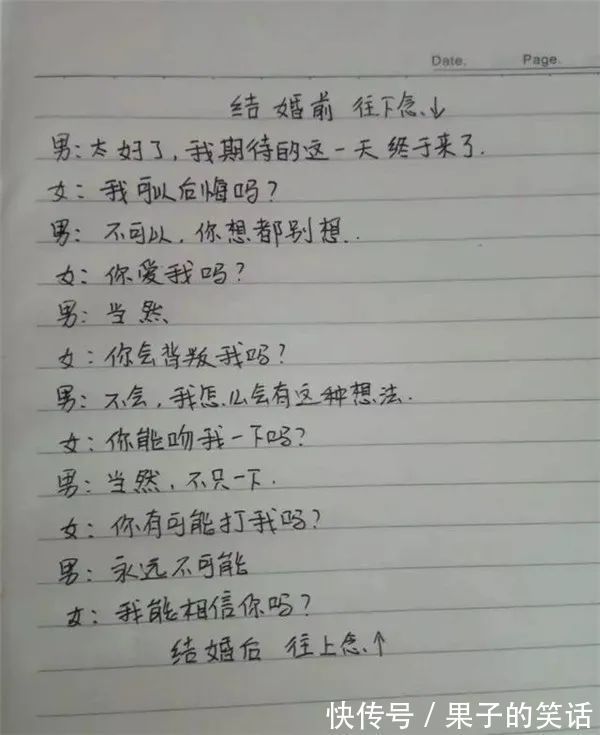 Date. Page.
结婚前 往下念↓
男:太好了,我期待的这一天终于来了.
女:我可以后悔吗?
男:不可以,你想都别想..
女:你爱我吗?
男:当然
女:你会背叛我吗?
男:不会,我怎么会有这种想法.
女:你能吻我一下吗?
男:当然,不只一下.
女:你有可能打我吗?
男:永远不可能
女:我能相信你吗?
结婚后 往上念↑
快传号/果子的笑话